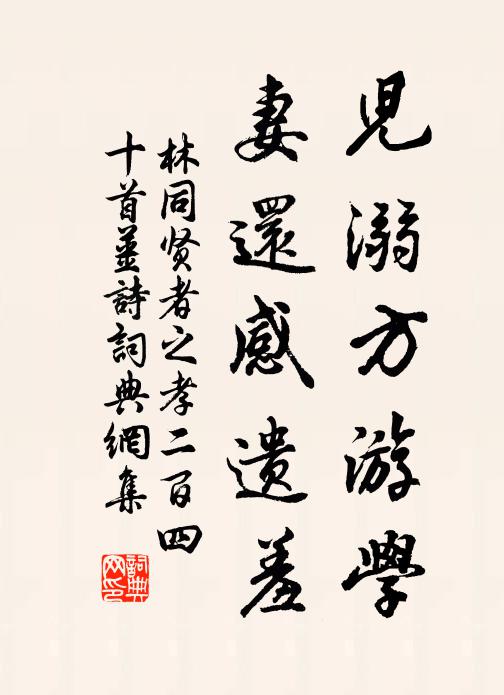 兒溺方游學
妻還感遺羞
林同贤者之孝二百四
十首姜詩詞典網集
詞典
网印